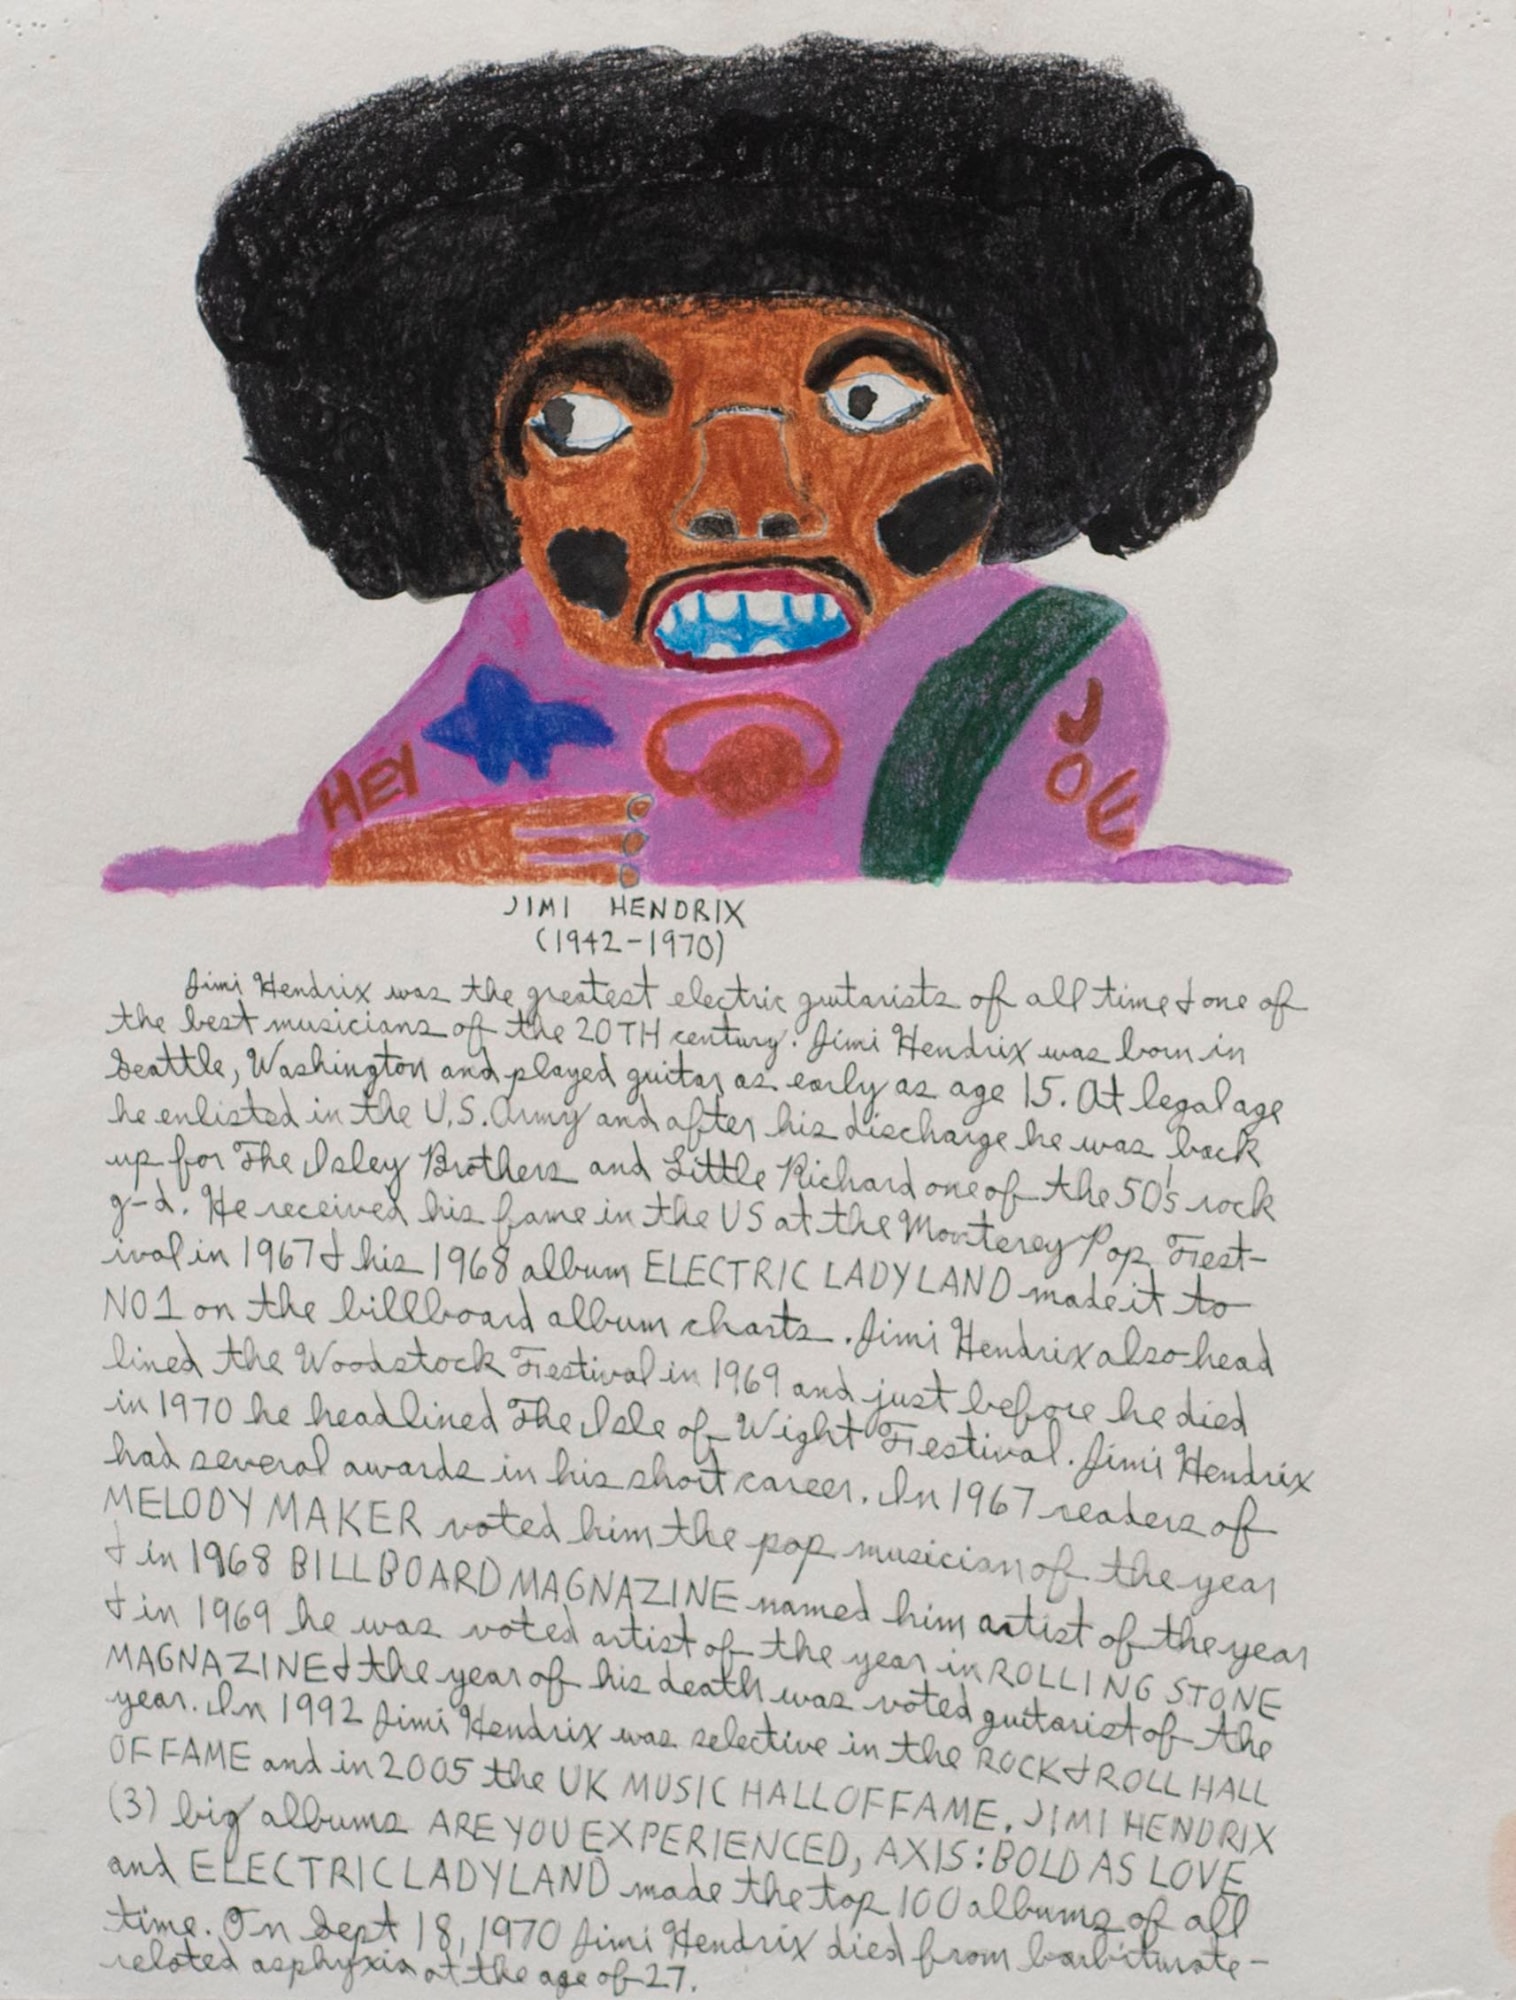 HEY
JOE
JIMI HENDRIX
(1942-1970)
Jimi Hendrix was the greatest electric guitarists of all time & one of
the best musicians of the 20TH century. Jimi Hendrix was born in
Seattle, Washington and played guitar as early as age 15. At legal age
he enlisted in the U.S. Army and after his discharge he was back
up for The Isley Brothers and Little Richard one of the 50's rock
g-d. He received his fame in the US at the Monterey Pop Fest-
ival in 1967 & his 1968 album ELECTRIC LADYLAND made it to
NO1 on the billboard album charts. Jimi Hendrix also head
lined the Woodstock Festival in 1969 and just before he died
in 1970 he headlined The Isle of Wight Festival. Jimi Hendrix
had several awards in his short career. In 1967 readers of
MELODY MAKER voted him the pop musician of the year
& in 1968 BILLBOARD MAGNAZINE named him artist of the year
& in 1969 he was voted artist of the year in ROLLING STONE
MAGNAZINE & the year of his death was voted guitarist of the
year. In 1992 Jimi Hendrix was selective in the ROCK & ROLL HALL
OF FAME and in 2005 the UK MUSIC HALL OF FAME. JIMI HENDRIX
(3) big albums ARE YOU EXPERIENCED, AXIS: BOLD AS LOVE
and ELECTRIC LADYLAND made the top 100 albums of all
time. On Sept 18, 1970 Jimi Hendrix died from barbiturate-
related asphyxia at the age of 27.